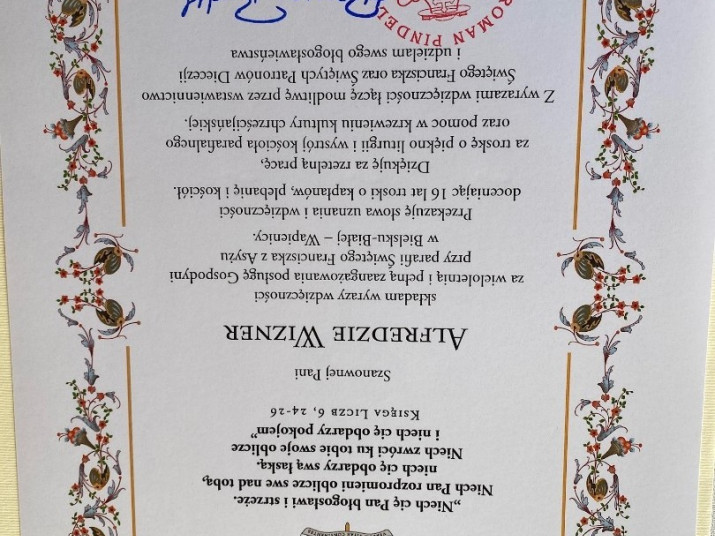 „Niech cię Pan błogosławi i strzeże.
Niech Pan rozpromieni oblicze swe nad tobą,
niech cię obdarzy swą łaską.
Niech zwróci ku tobie swoje oblicze
i niech cię obdarzy pokojem”
Księga Liczb 6, 24-26
Szanownej Pani
Alfredzie Wizner
składam wyrazy wdzięczności
za wieloletnią i pełną zaangażowania posługę Gospodyni
przy parafii Świętego Franciszka z Asyżu
w Bielsku-Białej – Wapienicy.
Przekazuję słowa uznania i wdzięczności
doceniając 16 lat troski o kapłanów, plebanię i kościół.
Dziękuję za rzetelną pracę,
za troskę o piękno liturgii i wystrój kościoła parafialnego
oraz pomoc w krzewieniu kultury chrześcijańskiej.
Z wyrazami wdzięczności łączę modlitwę przez wstawiennictwo
Świętego Franciszka oraz Świętych Patronów Diecezji
i udzielam swego błogosławieństwa
ROMAN PINDEL